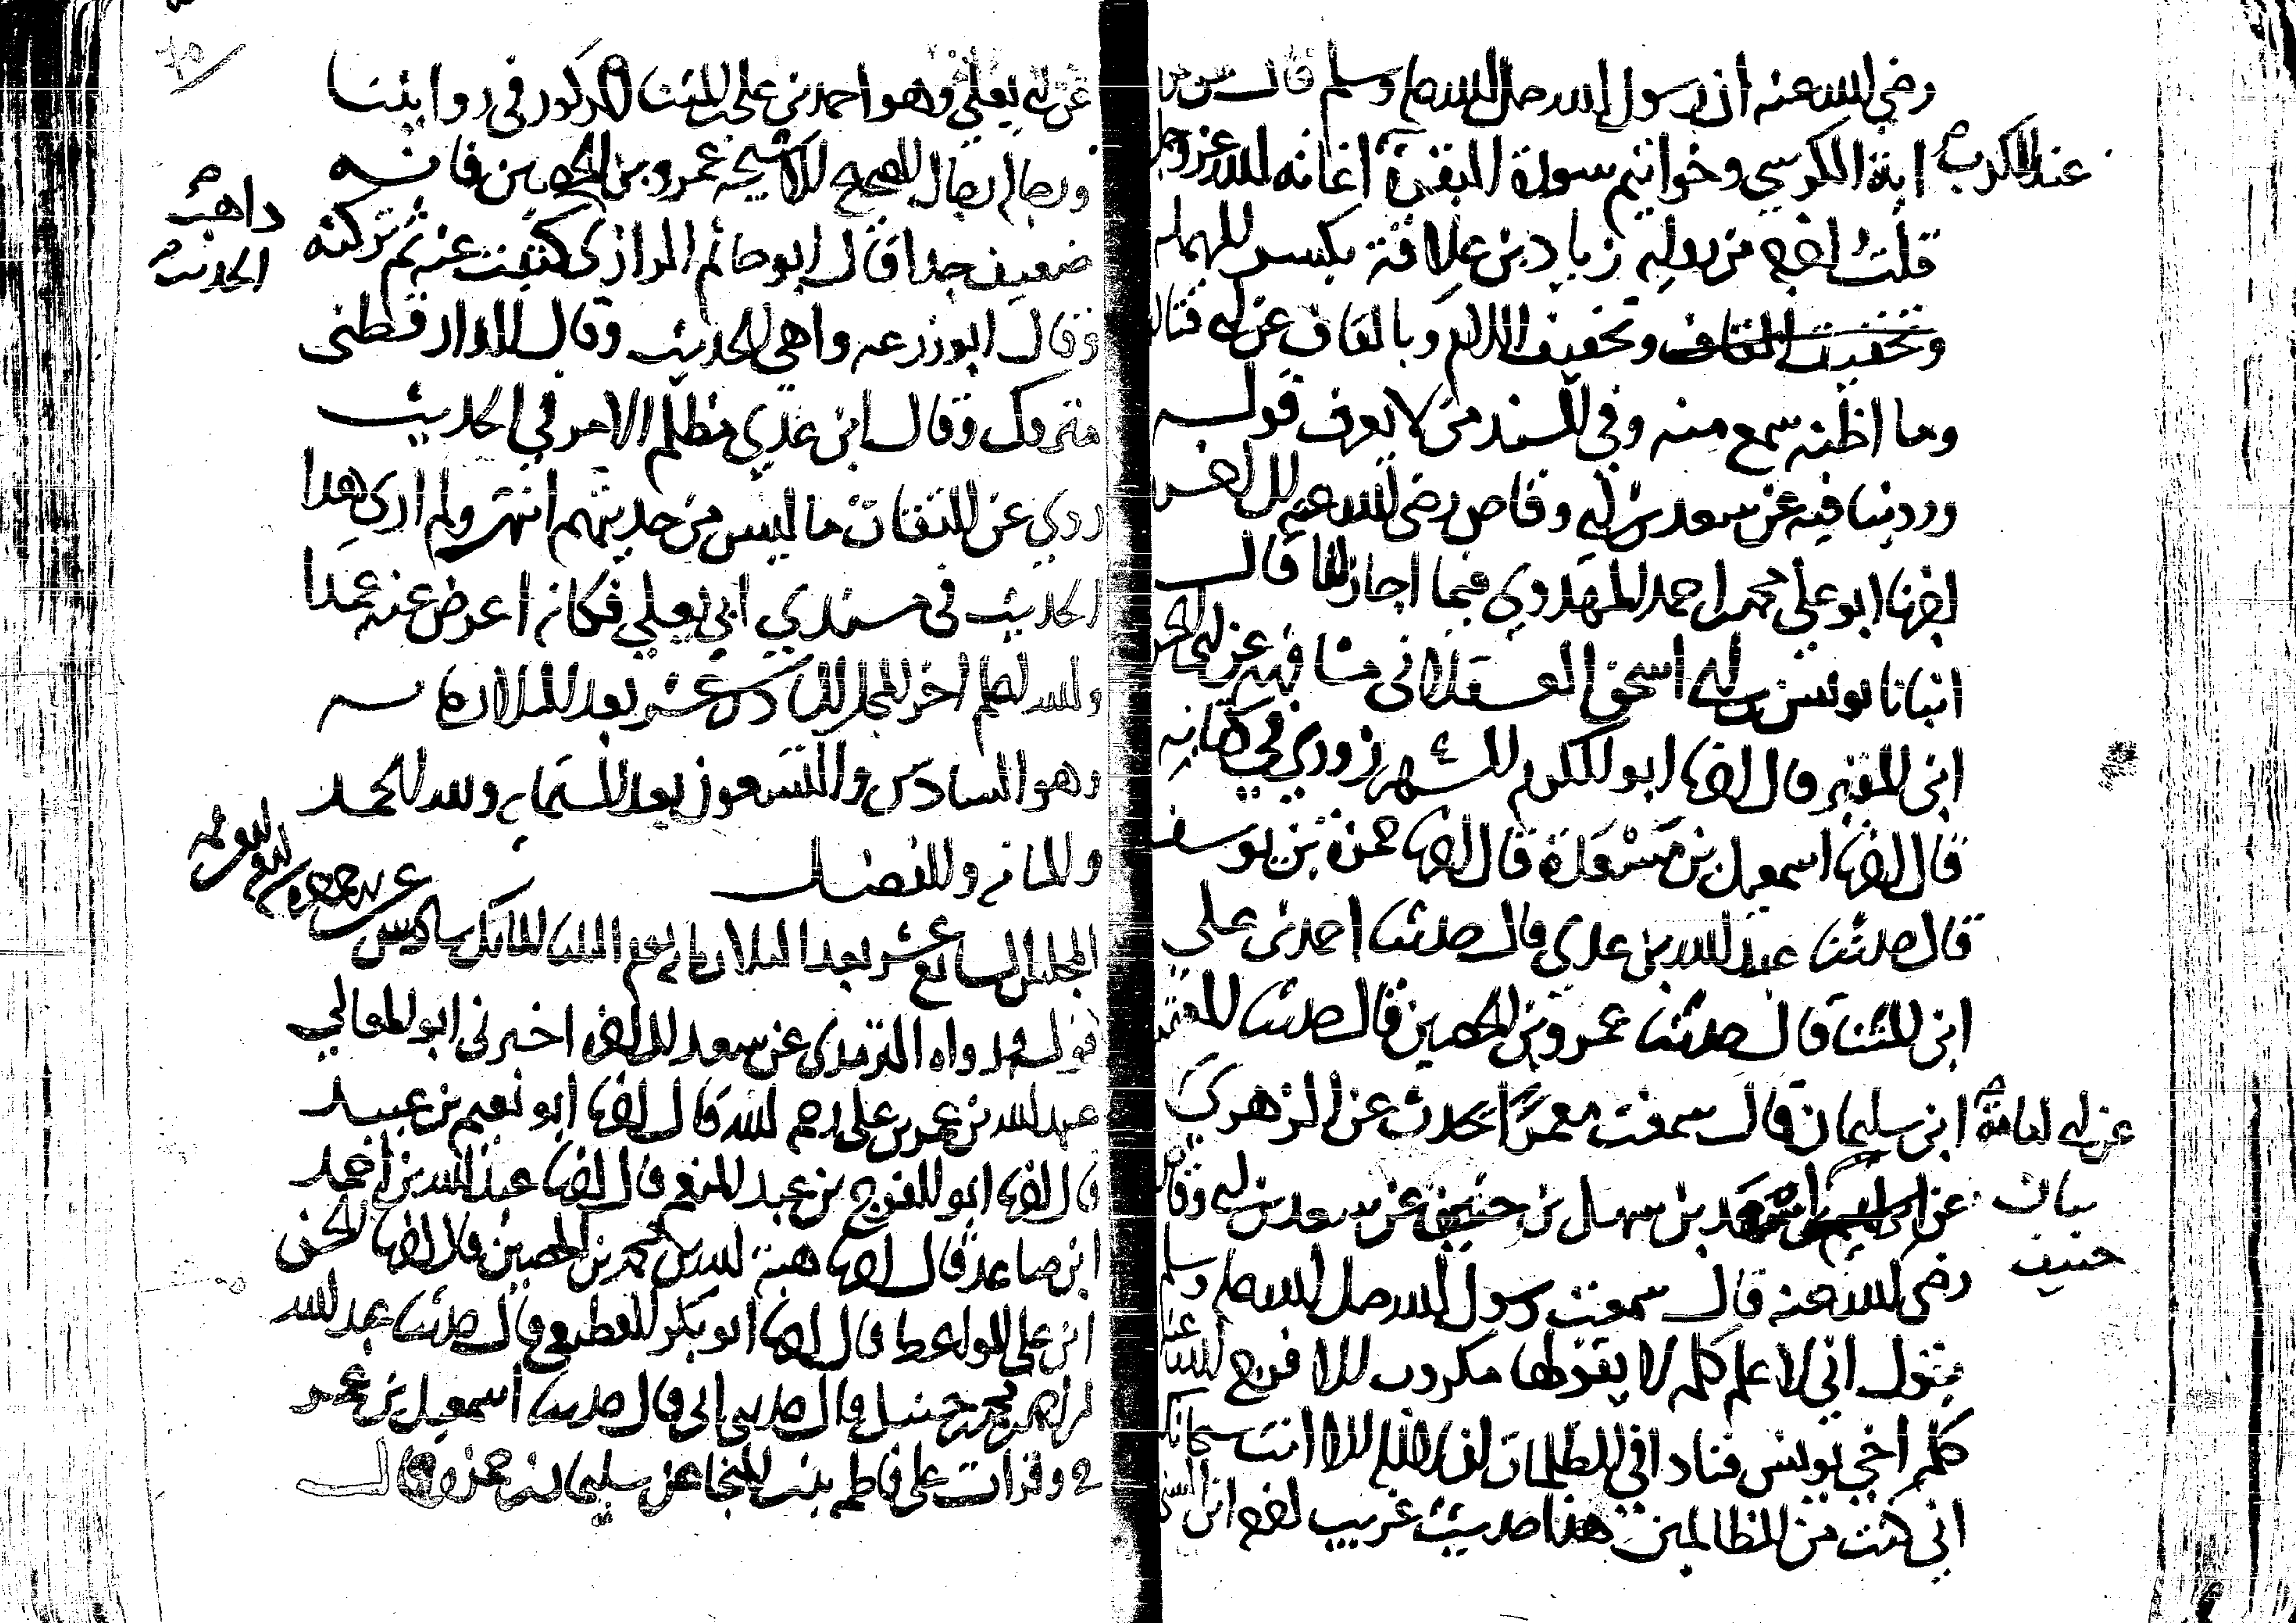 رضي الله عنه ان رسول الله صلى الله عليه وسلم قال من قرا
اية الكرسي وخواتيم سورة البقرة اغاثه الله عز وجل
عند الكرب
قلت اخرجه من رواية زياد بن علاقة بكسر المهملة
وتخفيف القاف وتخفيف اللام وبالقاف عن ابي قتادة
وما اظنه سمع منه وفي السند من لا يعرف قوله
وروينا فيه عن سعد بن ابي وقاص رضي الله عنه الى اخره
اخبرنا ابو علي محمد بن احمد المهدوي فيما اجاز لنا قال
انبانا يونس بن ابي اسحق العسقلاني مشافهة عن ابي الحسن
ابن المقير قال اخبرنا ابو الكرم الشهرزوري في كتابه
قال اخبرنا اسمعيل بن مسعدة قال اخبرنا حمزة بن يوسف
قال حدثنا عبد الله بن عدي قال حدثنا احمد بن علي
ابن المثنا قال حدثنا عمرو بن الحصين قال حدثنا المعتمر
ابن سليمان قال سمعت معمرا يحدث عن الزهري
عن ابي امامة
عن اسعد بن سهل بن حنيف عن سعد بن ابي وقاص
بيان
حنيف
رضي الله عنه قال سمعت رسول الله صلى الله عليه وسلم
يقول اني لاعلم كلمة لا يقولها مكروب الا فرج الله عنه
كلمة اخي يونس فنادا في الظلمات ان لا اله الا انت سبحانك
اني كنت من الظالمين هذا حديث غريب اخرجه ابن السني
عن ابي يعلي وهو احمد بن علي بن المثنا المذكور في روايتنا
ورجاله رجال الصحيح الا شيخه عمرو بن الحصين فانه
ضعيف جدا قال ابو حاتم الرازي كتبت عنه ثم تركته
ذاهب
الحديث
وقال ابو زرعه واهي الحديث وقال الدارقطني
متروك وقال ابن عدي مظلم الامر في الحديث
روي عن الثقات ما ليس من حديثهم انتهى ولم ار هذا
الحديث في مسندي ابي يعلي فكانه اعرض عنه عمدا
والله اعلم اخر المجلس السادس عشر بعد الثلاثمائة
وهو السادس والتسعون بعد الستمائة ولله الحمد
والمنة والفضل
المجلس السابع عشر بعد الثلاثمائة
قوله ورواه الترمذي عن سعد الى اخره اخبرني ابو المعالي
عبد الله بن عمر بن علي رحمه الله قال اخبرنا ابو نعيم بن عبيد
قال اخبرنا ابو الفرج بن عبد المنعم قال اخبرنا عبد الله بن احمد
ابن صاعد قال اخبرنا هبة الله بن محمد بن الحصين قال اخبرنا الحسن
ابن علي الواعظ قال اخبرنا ابو بكر القطيعي قال حدثنا عبد الله
ابن احمد بن محمد بن حنبل قال حدثني ابي قال حدثنا اسمعيل بن عمر
ح وقرات على فاطمة بنت المنجا عن سليمان بن حمزة قال